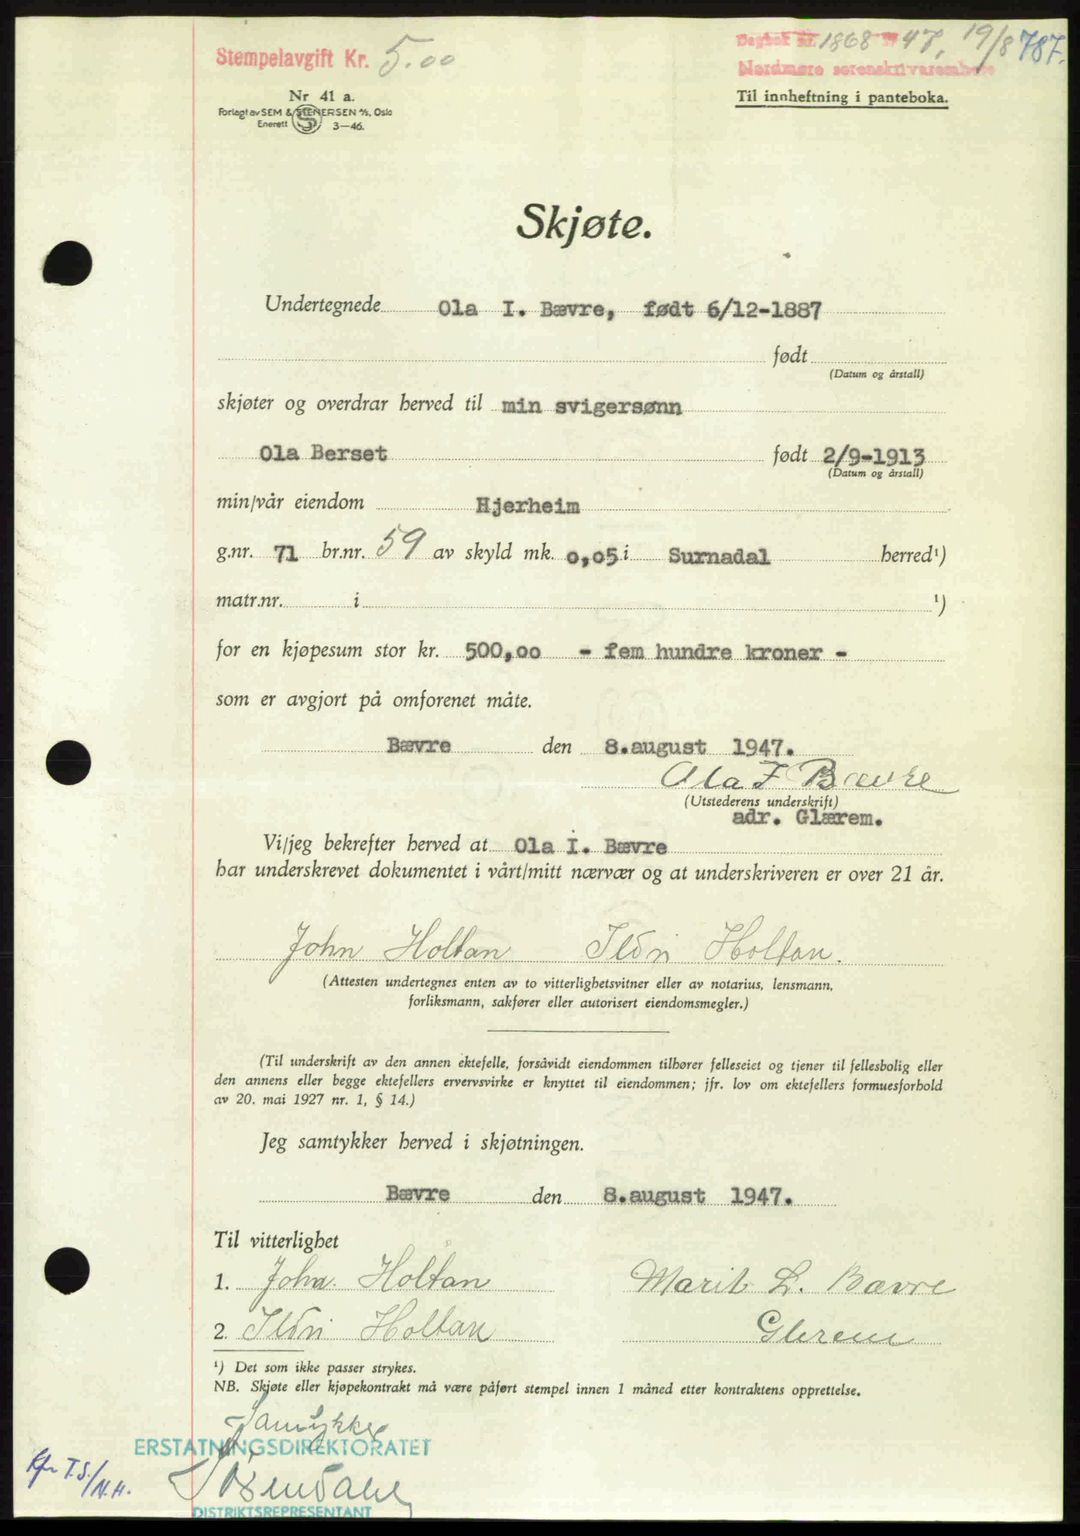 Stempelavgift Kr. 5.00
Dagbok nr. 1868 47, 19/8 787.
Nordmøre sorenskriverembete
Nr 41 a.
Forlagt av SEM & STENERSEN A/S, Oslo
Enerett S 3—46.
Til innheftning i panteboka.
Skjøte.
Undertegnede Ola I. Bævre, født 6/12-1887
født
(Datum og årstall)
skjøter og overdrar herved til min svigersønn
Ola Berset født 2/9-1913
(Datum og årstall)
min/vår eiendom Hjerheim
g.nr. 71 br.nr. 59 av skyld mk. 0,05 i Surnadal herred¹)
matr.nr. i ¹)
for en kjøpesum stor kr. 500,00 - fem hundre kroner -
som er avgjort på omforenet måte.
Bævre den 8.august 1947.
Ola I Bævre
(Utstederens underskrift)
adr. Glærem.
Vi/jeg bekrefter herved at Ola I. Bævre
har underskrevet dokumentet i vårt/mitt nærvær og at underskriveren er over 21 år.
John Holtan Ildri Holtan.
(Attesten undertegnes enten av to vitterlighetsvitner eller av notarius, lensmann,
forliksmann, sakfører eller autorisert eiendomsmegler.)
(Til underskrift av den annen ektefelle, forsåvidt eiendommen tilhører felleseiet og tjener til fellesbolig eller
den annens eller begge ektefellers ervervsvirke er knyttet til eiendommen; jfr. lov om ektefellers formuesforhold
av 20. mai 1927 nr. 1, § 14.)
Jeg samtykker herved i skjøtningen.
Bævre den 8.august 1947.
Til vitterlighet
1. John Holtan Marit L. Bævre
2. Ildri Holtan Glærem
¹) Det som ikke passer strykes.
NB. Skjøte eller kjøpekontrakt må være påført stempel innen 1 måned etter kontraktens opprettelse.
Samtykker
ERSTATNINGSDIREKTORATET
Kfr T.S./N.H.
DISTRIKTSREPRESENTANT